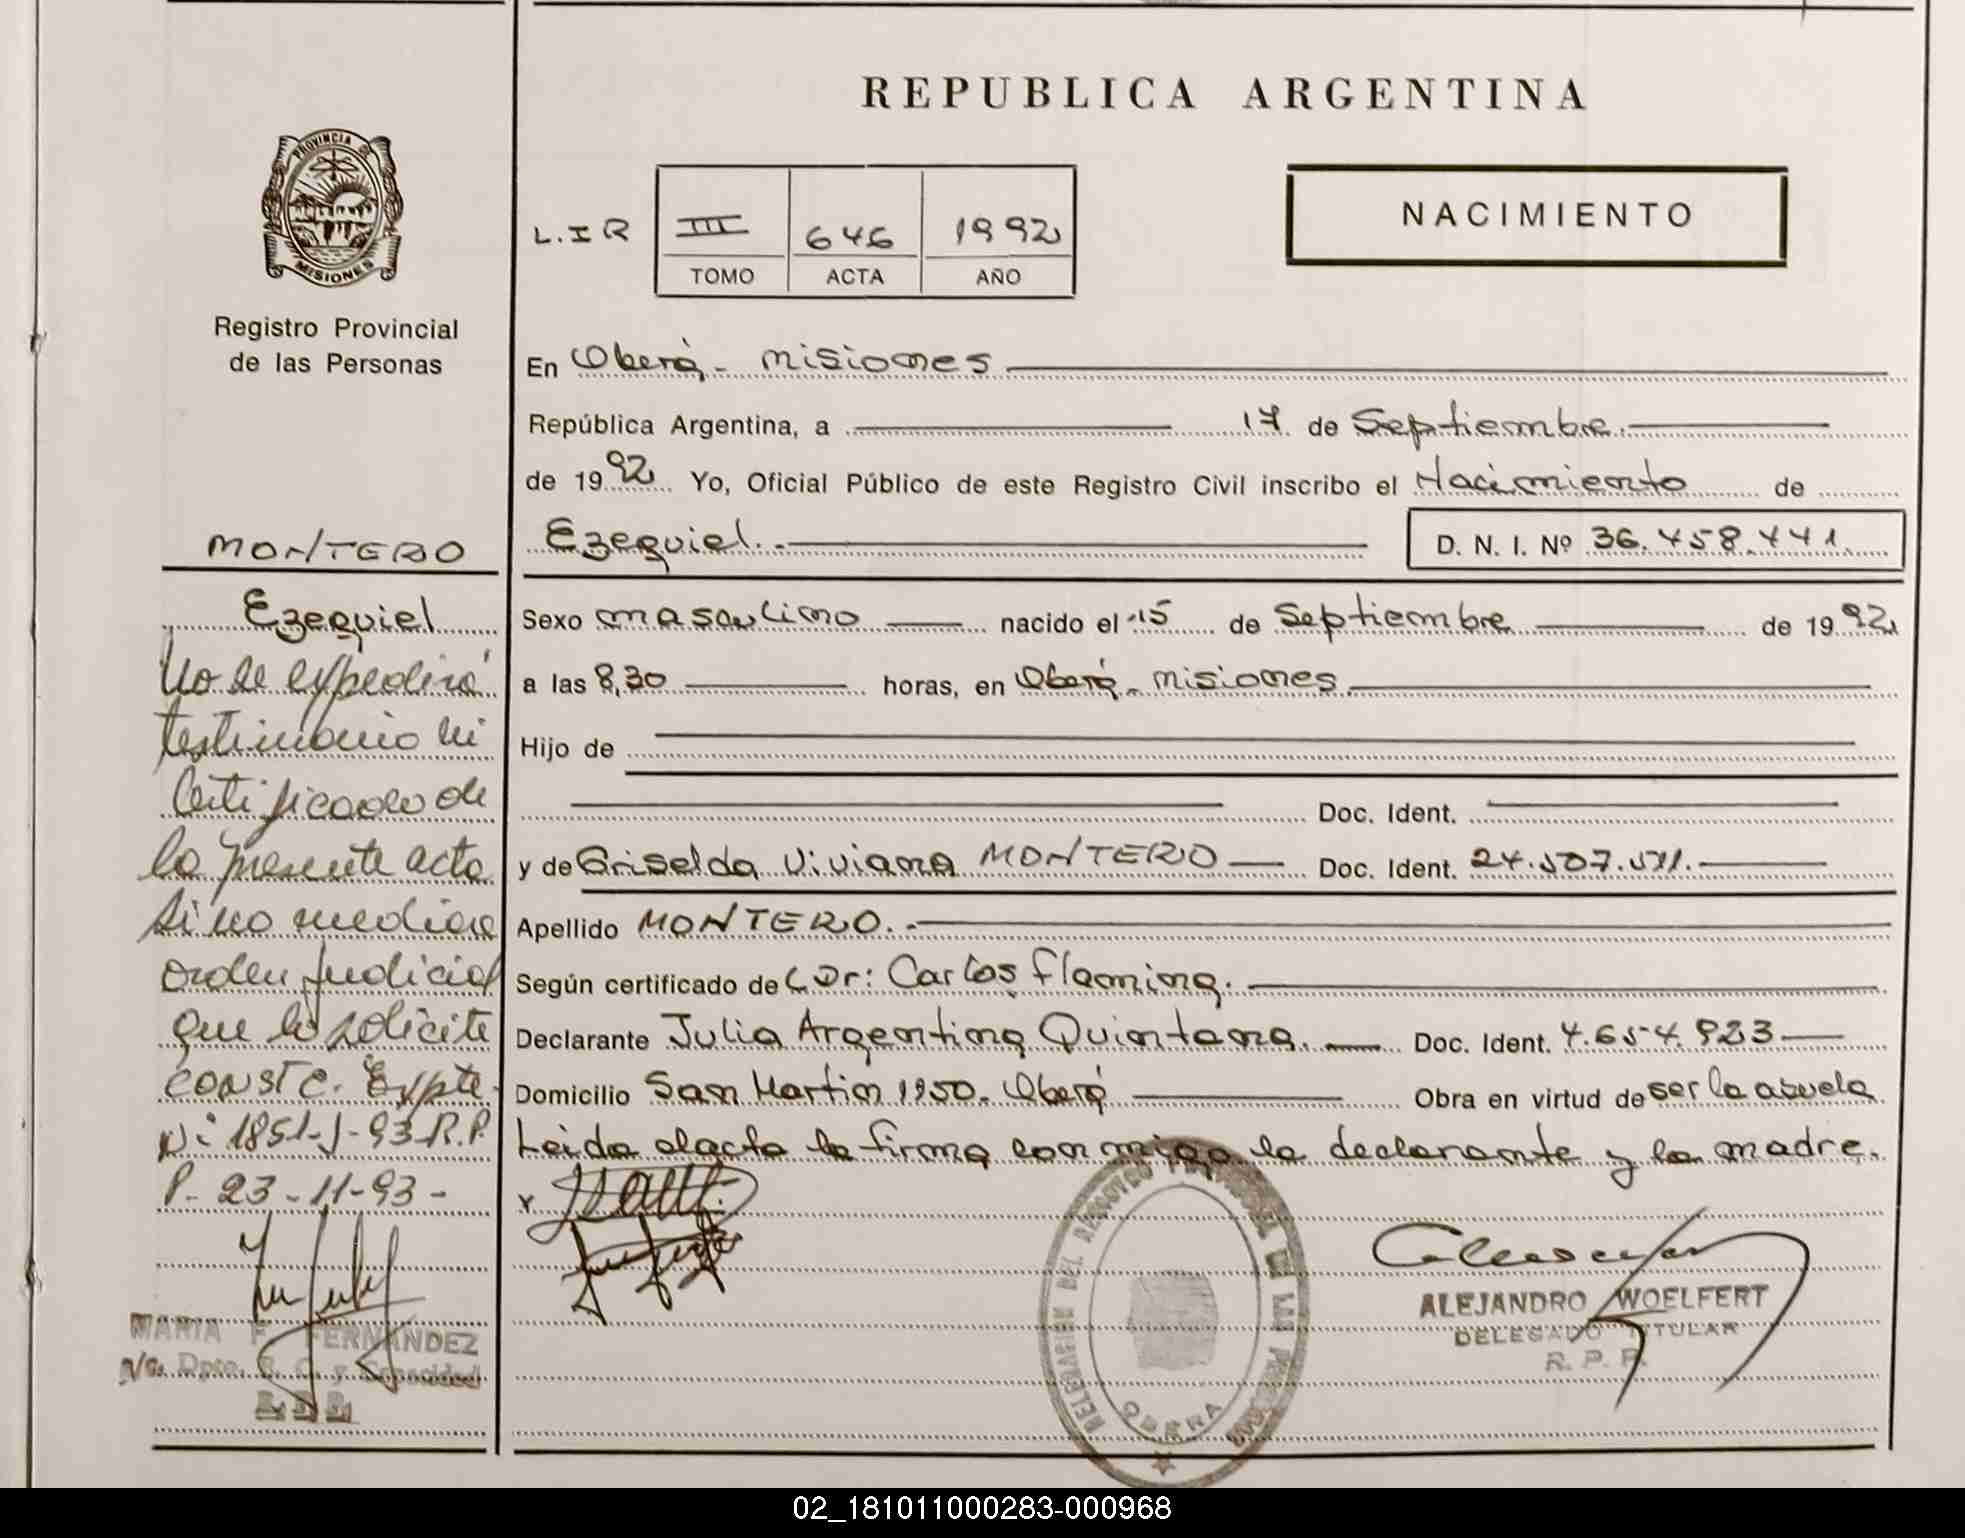 REPUBLICA ARGENTINA
PROVINCIA DE
MISIONES
Registro Provincial
de las Personas
L.I R
III 646 1992
TOMO ACTA AÑO
NACIMIENTO
En Oberá - misiones
República Argentina, a 17 de Septiembre.
de 1992 Yo, Oficial Público de este Registro Civil inscribo el Nacimiento de
Ezequiel. - D. N. I. Nº 36.458.441.
Sexo masculino nacido el 15 de Septiembre de 1992
a las 8,30 horas, en Oberá - misiones
Hijo de
Doc. Ident.
y de Griselda Viviana MONTERO Doc. Ident. 24.507.571.
Apellido MONTERO. -
Según certificado de Dr: Carlos Fleming.
Declarante Julia Argentina Quintana. Doc. Ident. 4.654.923
Domicilio San Martin 1950. Oberá Obra en virtud de ser la abuela
Leida el acta la firma conmigo la declarante y la madre.
MONTERO
Ezequiel
No se expedirá
testimonio ni
Certificado de
la presente acta
si no mediare
orden judicial
que lo solicite
CONSTE. Expte.
Nº 1851-J-93-R.P.
P- 23-11-93-
MARIA F. FERNANDEZ
a/c. Dpto. R. C. y Capacidad
R.P.P.
DELEGACION DEL REGISTRO PROVINCIAL DE LAS PERSONAS
OBERA
ALEJANDRO WOELFERT
DELEGADO TITULAR
R. P. P.
02_181011000283-000968